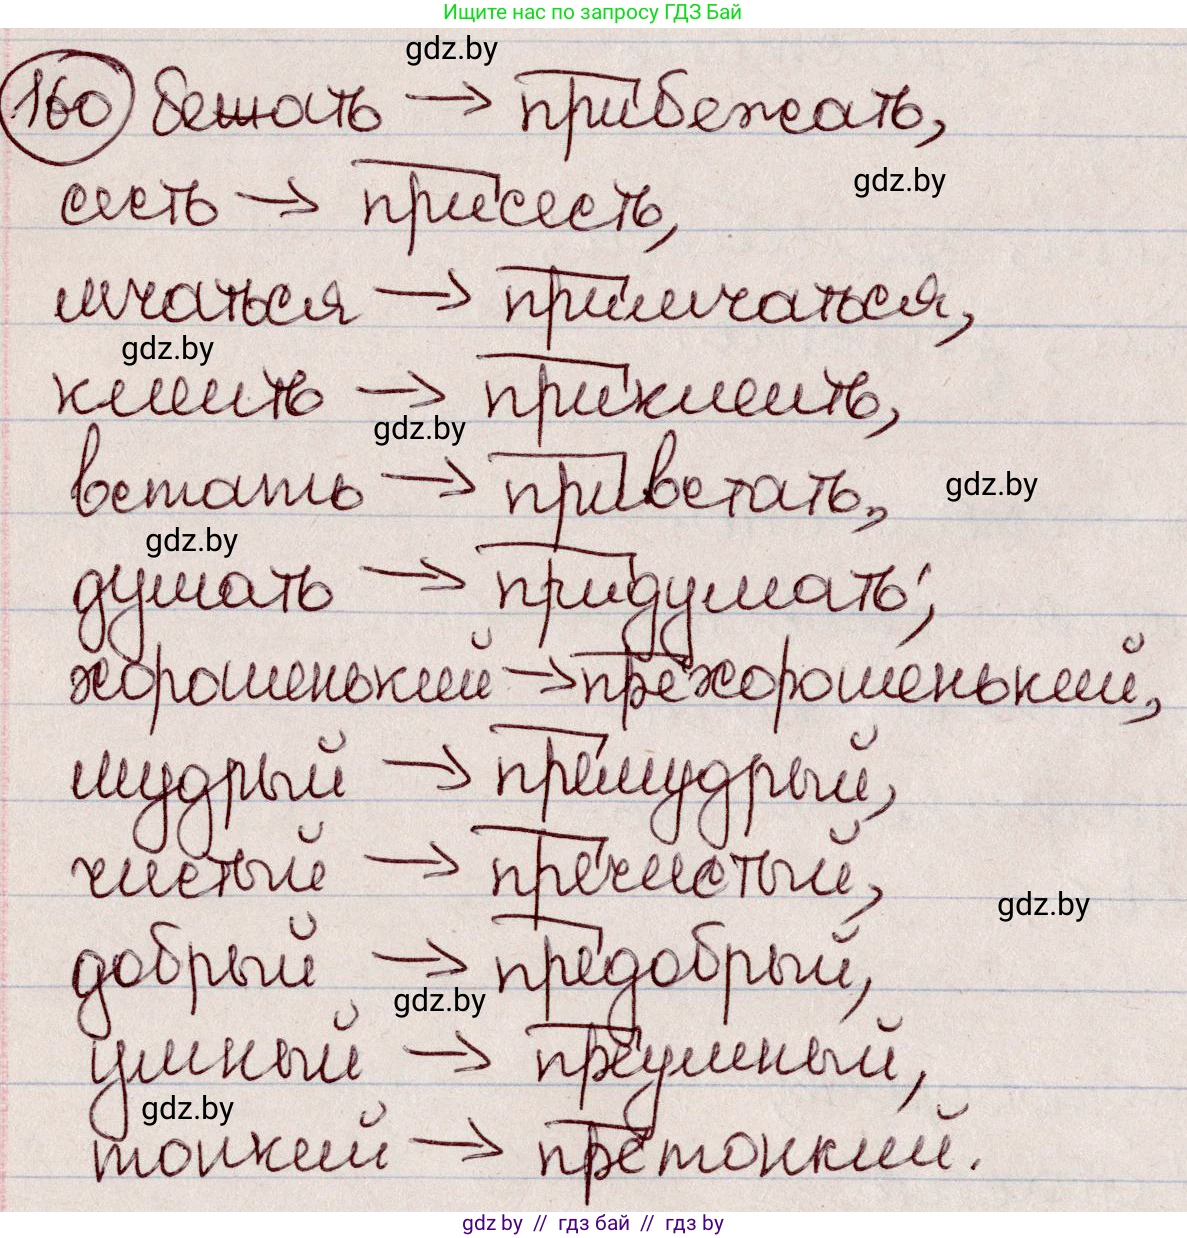 Ищите нас по запросу ГДЗ Бай
gdz.by
160 бежать → прибежать,
gdz.by
сесть → присесть,
мчаться → примчаться,
gdz.by
клеить → приклеить,
gdz.by
встать → привстать,
gdz.by
gdz.by
думать → придумать;
хорошенький → прехорошенький,
мудрый → премудрый,
чистый → пречистый,
gdz.by
добрый → предобрый,
gdz.by
умный → преумный,
gdz.by
тонкий → претонкий.
gdz by // гдз бай // гдз by